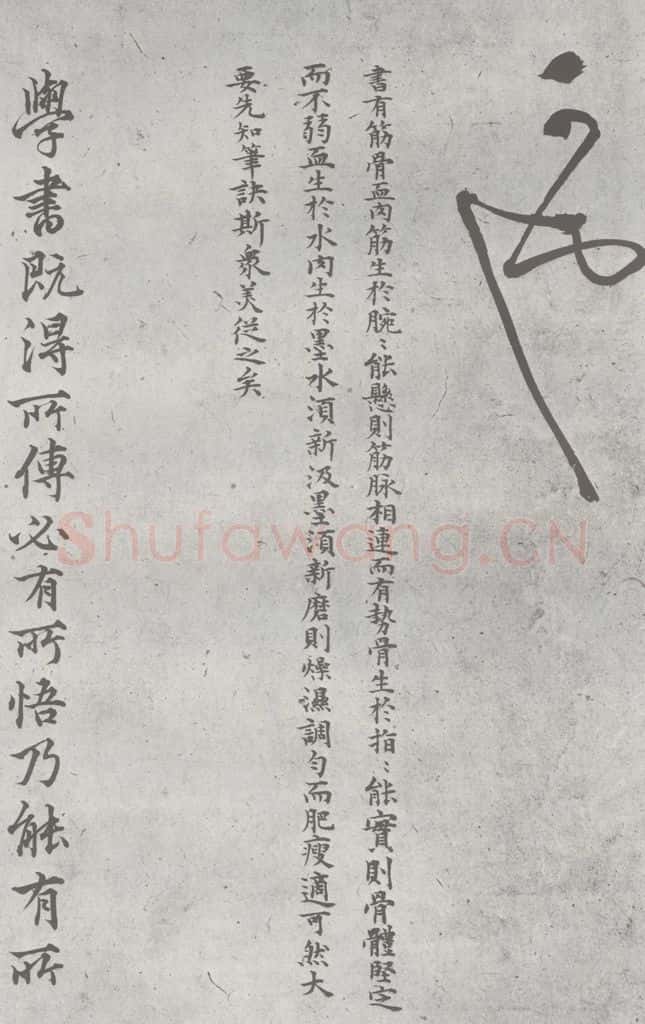 書有筋骨血肉筋生於腕〻能懸則筋脉相連而有勢骨生於指〻能實則骨體堅定
而不弱血生於水肉生於墨水湏新汲墨湏新磨則燥濕調勻而肥瘦適可然大
要先知筆訣斯衆美從之矣
學書既得所傳必有所悟乃能有所
Shufawang.CN